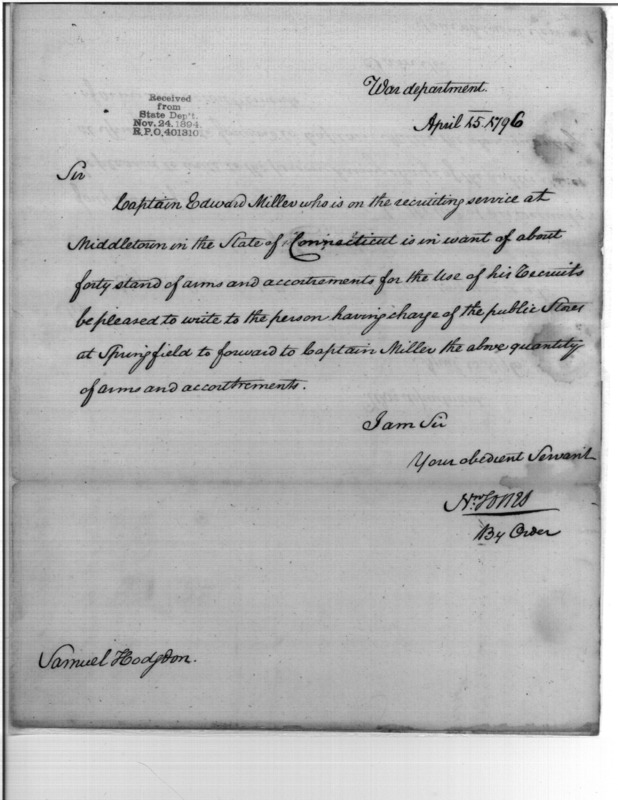 War department.
April 15. 1796
Received
from
State Dep't.
Nov. 24. 1894
R.P.O, 401310.
Sir
Captain Edward Miller who is on the recruiting service at
Middletown in the State of Connecticut is in want of about
forty stand of arms and accoutrements for the Use of his Recruits
be pleased to write to the person having charge of the public Stores
at Springfield to forward to Captain Miller the above quantity
of arms and accouttrements.
I am Sir
Your obedient Servant
Nn Jones
By Order
Samuel Hodgdon.